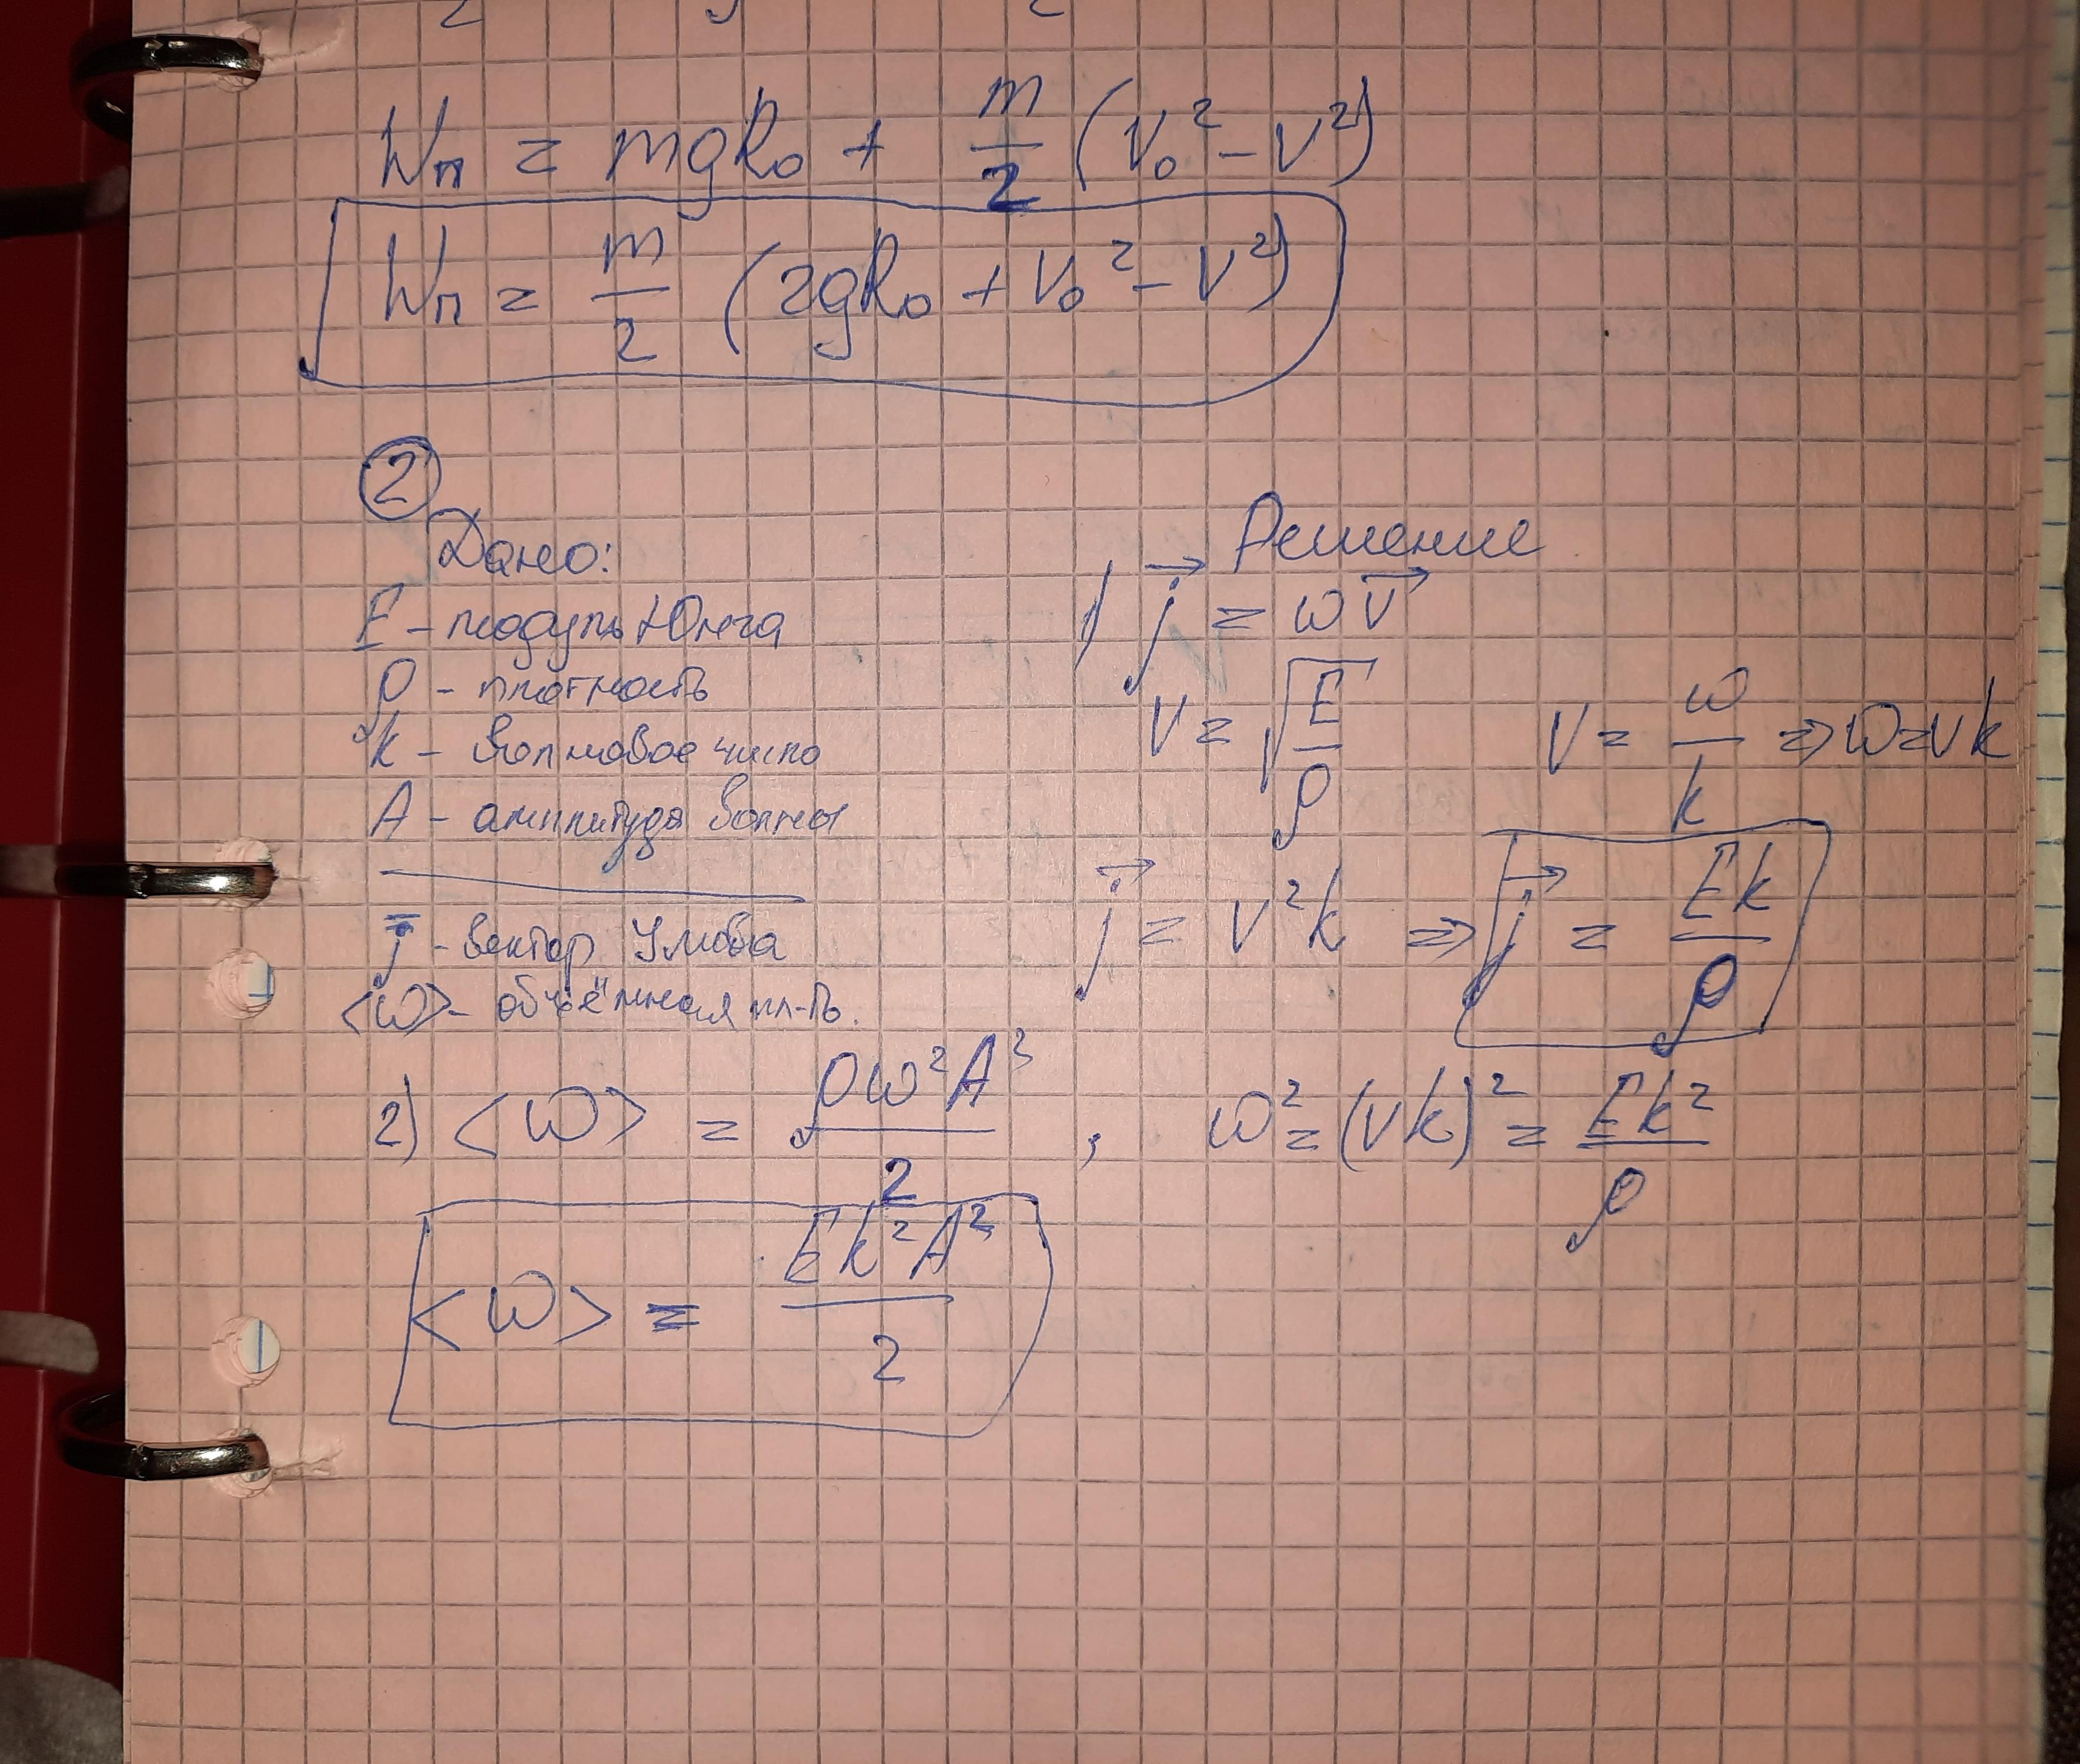 Wп = mgh₀ + m/2 (V₀² - V²)
Wп = m/2 (2gh₀ + V₀² - V²)
②
Дано:
E - модуль Юнга
ρ - плотность
k - волновое число
A - амплитуда волны
j⃗ - вектор Умова
<w> - объёмная пл-ть.
Решение
1) j⃗ = ωv⃗
V = √(E/ρ)
V = ω/k ⇒ ω = Vk
j⃗ = V²k ⇒ j⃗ = Ek/ρ
2) <w> = ρω²A²/2 , ω² = (Vk)² = Ek²/ρ
<w> = Ek²A²/2